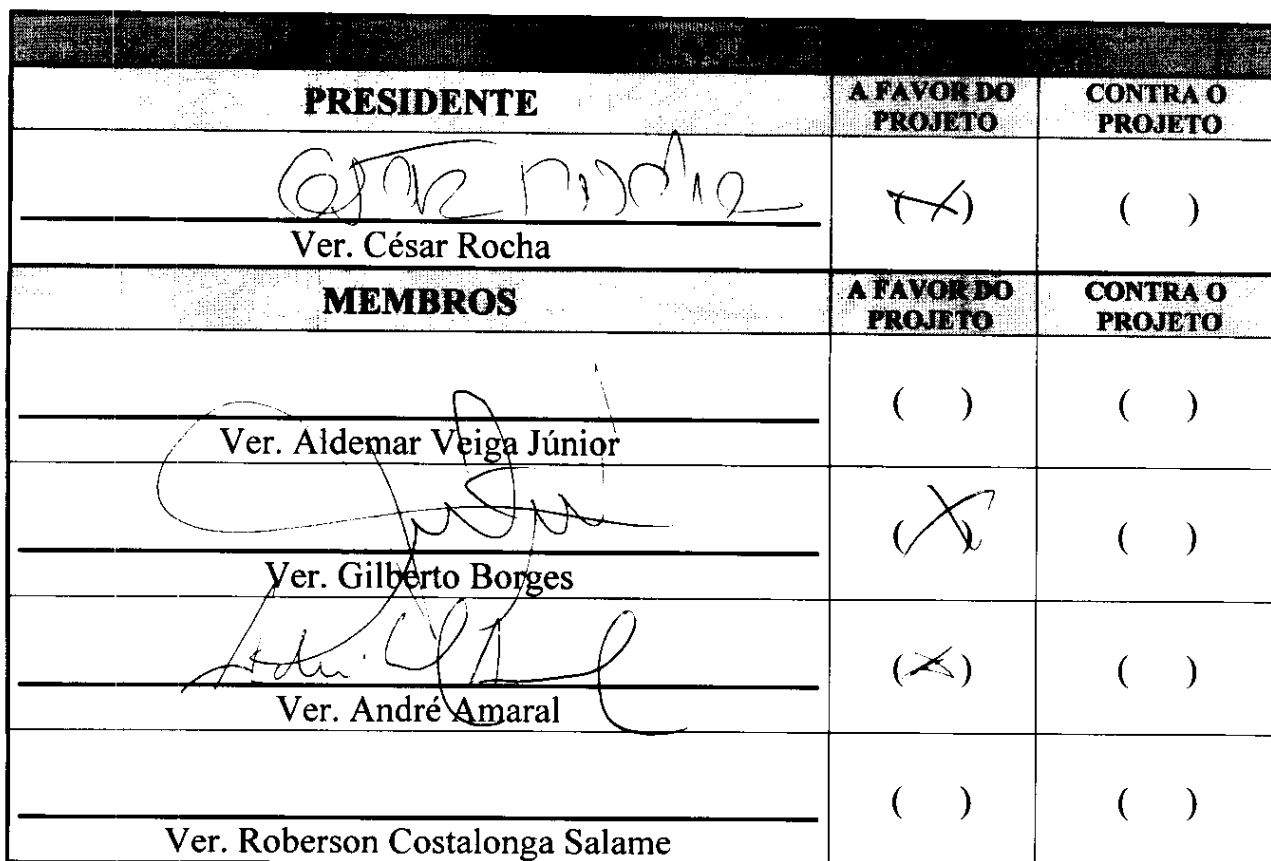 PRESIDENTE
A FAVOR DO PROJETO
CONTRA O PROJETO
( X ) ( )
Ver. César Rocha
MEMBROS
A FAVOR DO PROJETO
CONTRA O PROJETO
( ) ( )
Ver. Aldemar Veiga Júnior
( X ) ( )
Ver. Gilberto Borges
( X ) ( )
Ver. André Amaral
( ) ( )
Ver. Roberson Costalonga Salame